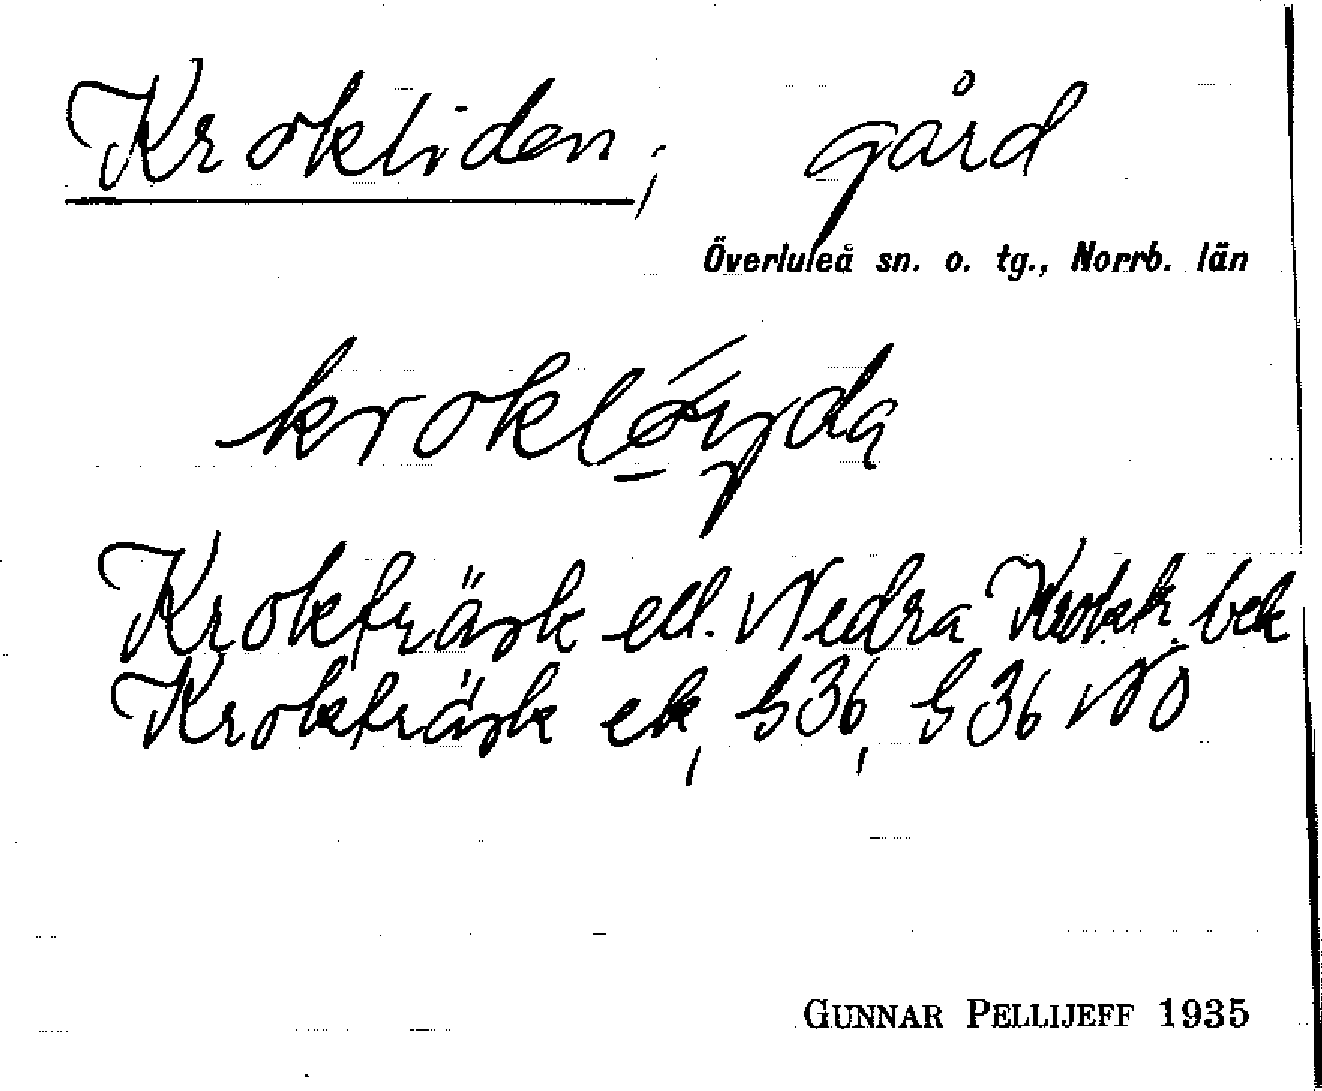 Krokliden, gård
Överluleå sn. o. tg., Norrb. län
Krokträsk ell. Nedra Kroktr. bek
Krokträsk ek, G36, G36 NO
GUNNAR PELLIJEFF 1935